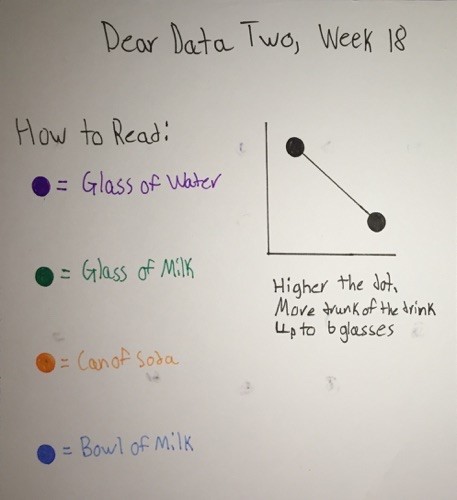 Dear Data Two, Week 18
How to Read:
= Glass of Water
= Glass of Milk
= Can of Soda
= Bowl of Milk
Higher the dot,
More drunk of the drink
Up to 6 glasses